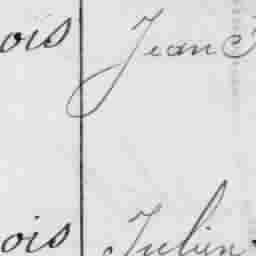 ois Jean
ois Julien